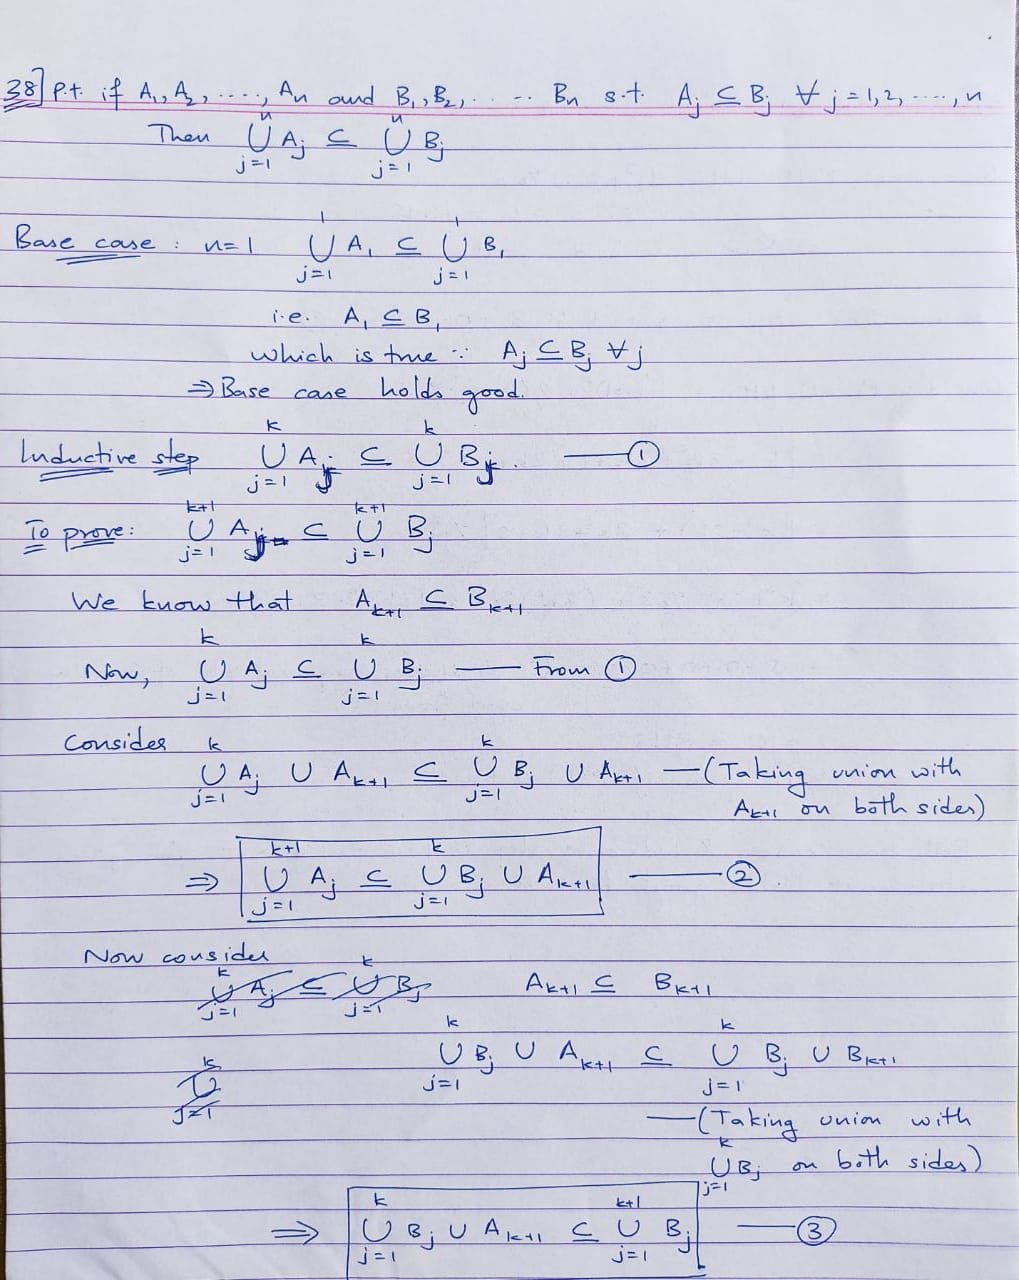 38] P.t. if A₁, A₂, ...., Aₙ and B₁, B₂, . . . .. Bₙ s.t. Aⱼ ⊆ Bⱼ ∀ j = 1, 2, ...., n
Then ⋃ⱼ₌₁ⁿ Aⱼ ⊆ ⋃ⱼ₌₁ⁿ Bⱼ
Base case : n=1 ⋃ⱼ₌₁¹ A₁ ⊆ ⋃ⱼ₌₁¹ B₁
i.e. A₁ ⊆ B₁
which is true ∵ Aⱼ ⊆ Bⱼ ∀ j
⇒ Base case holds good.
Inductive step ⋃ⱼ₌₁ᵏ Aⱼ ⊆ ⋃ⱼ₌₁ᵏ Bⱼ. —— ①
To prove: ⋃ⱼ₌₁ᵏ⁺¹ Aⱼ ⊆ ⋃ⱼ₌₁ᵏ⁺¹ Bⱼ
We know that Aₖ₊₁ ⊆ Bₖ₊₁
Now, ⋃ⱼ₌₁ᵏ Aⱼ ⊆ ⋃ⱼ₌₁ᵏ Bⱼ —— From ①
Consider
⋃ⱼ₌₁ᵏ Aⱼ ∪ Aₖ₊₁ ⊆ ⋃ⱼ₌₁ᵏ Bⱼ ∪ Aₖ₊₁ —(Taking union with
Aₖ₊₁ on both sides)
⇒ ⋃ⱼ₌₁ᵏ⁺¹ Aⱼ ⊆ ⋃ⱼ₌₁ᵏ Bⱼ ∪ Aₖ₊₁ —— ②.
Now consider
Aₖ₊₁ ⊆ Bₖ₊₁
⋃ⱼ₌₁ᵏ Bⱼ ∪ Aₖ₊₁ ⊆ ⋃ⱼ₌₁ᵏ Bⱼ ∪ Bₖ₊₁
—(Taking union with
⋃ⱼ₌₁ᵏ Bⱼ on both sides)
⇒ ⋃ⱼ₌₁ᵏ Bⱼ ∪ Aₖ₊₁ ⊆ ⋃ⱼ₌₁ᵏ⁺¹ Bⱼ —— ③